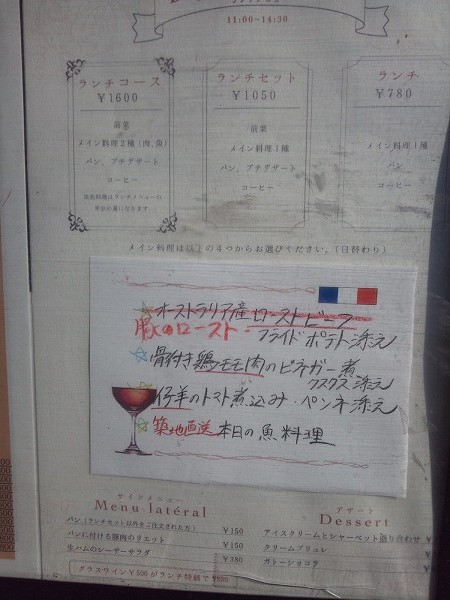 11:00~14:30
ランチコース
￥1600
前菜
メイン料理2種(肉、魚)
パン、プチデザート
コーヒー
ランチセット
￥1050
前菜
メイン料理1種
パン、プチデザート
コーヒー
ランチ
￥780
メイン料理1種
パン
コーヒー
メイン料理は以下の4つからお選びください。(日替わり)
☆オーストラリア産ローストビーフ
豚のロースト・フライドポテト添え
☆骨付き鶏モモ肉のビネガー煮
クスクス添え
仔羊のトマト煮込み・ペンネ添え
☆築地直送 本日の魚料理
サイドメニュー
Menu latéral
パン(ランチセット以外をご注文された方) ￥150
パンに付ける豚肉のリエット ￥150
生ハムのシーザーサラダ ￥380
グラスワイン￥500がランチ特価で
デザート
Dessert
アイスクリームとシャーベット盛り合わせ ￥
クリームブリュレ ￥
ガトーショコラ ￥